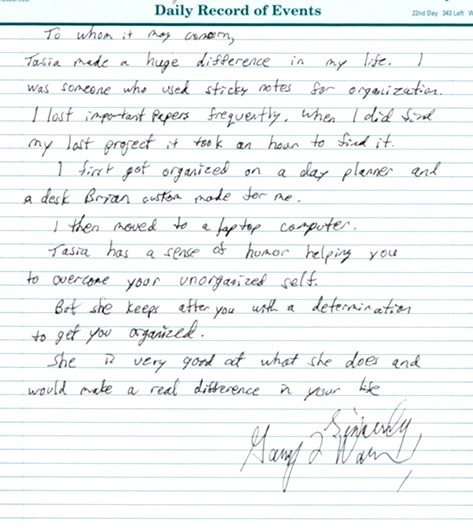 Daily Record of Events
22nd Day 343 Left W
To whom it may concern,
Tasia made a huge difference in my life. I
was someone who used sticky notes for organization.
I lost important Papers frequently. When I did find
my last project it took an hour to find it.
I first got organized on a day planner and
a desk Brian custom made for me.
I then moved to a laptop computer.
Tasia has a sense of humor helping you
to overcome your unorganized self.
But she keeps after you with a determination
to get you organized.
She is very good at what she does and
would make a real difference in your life
Sincerely,
Gary